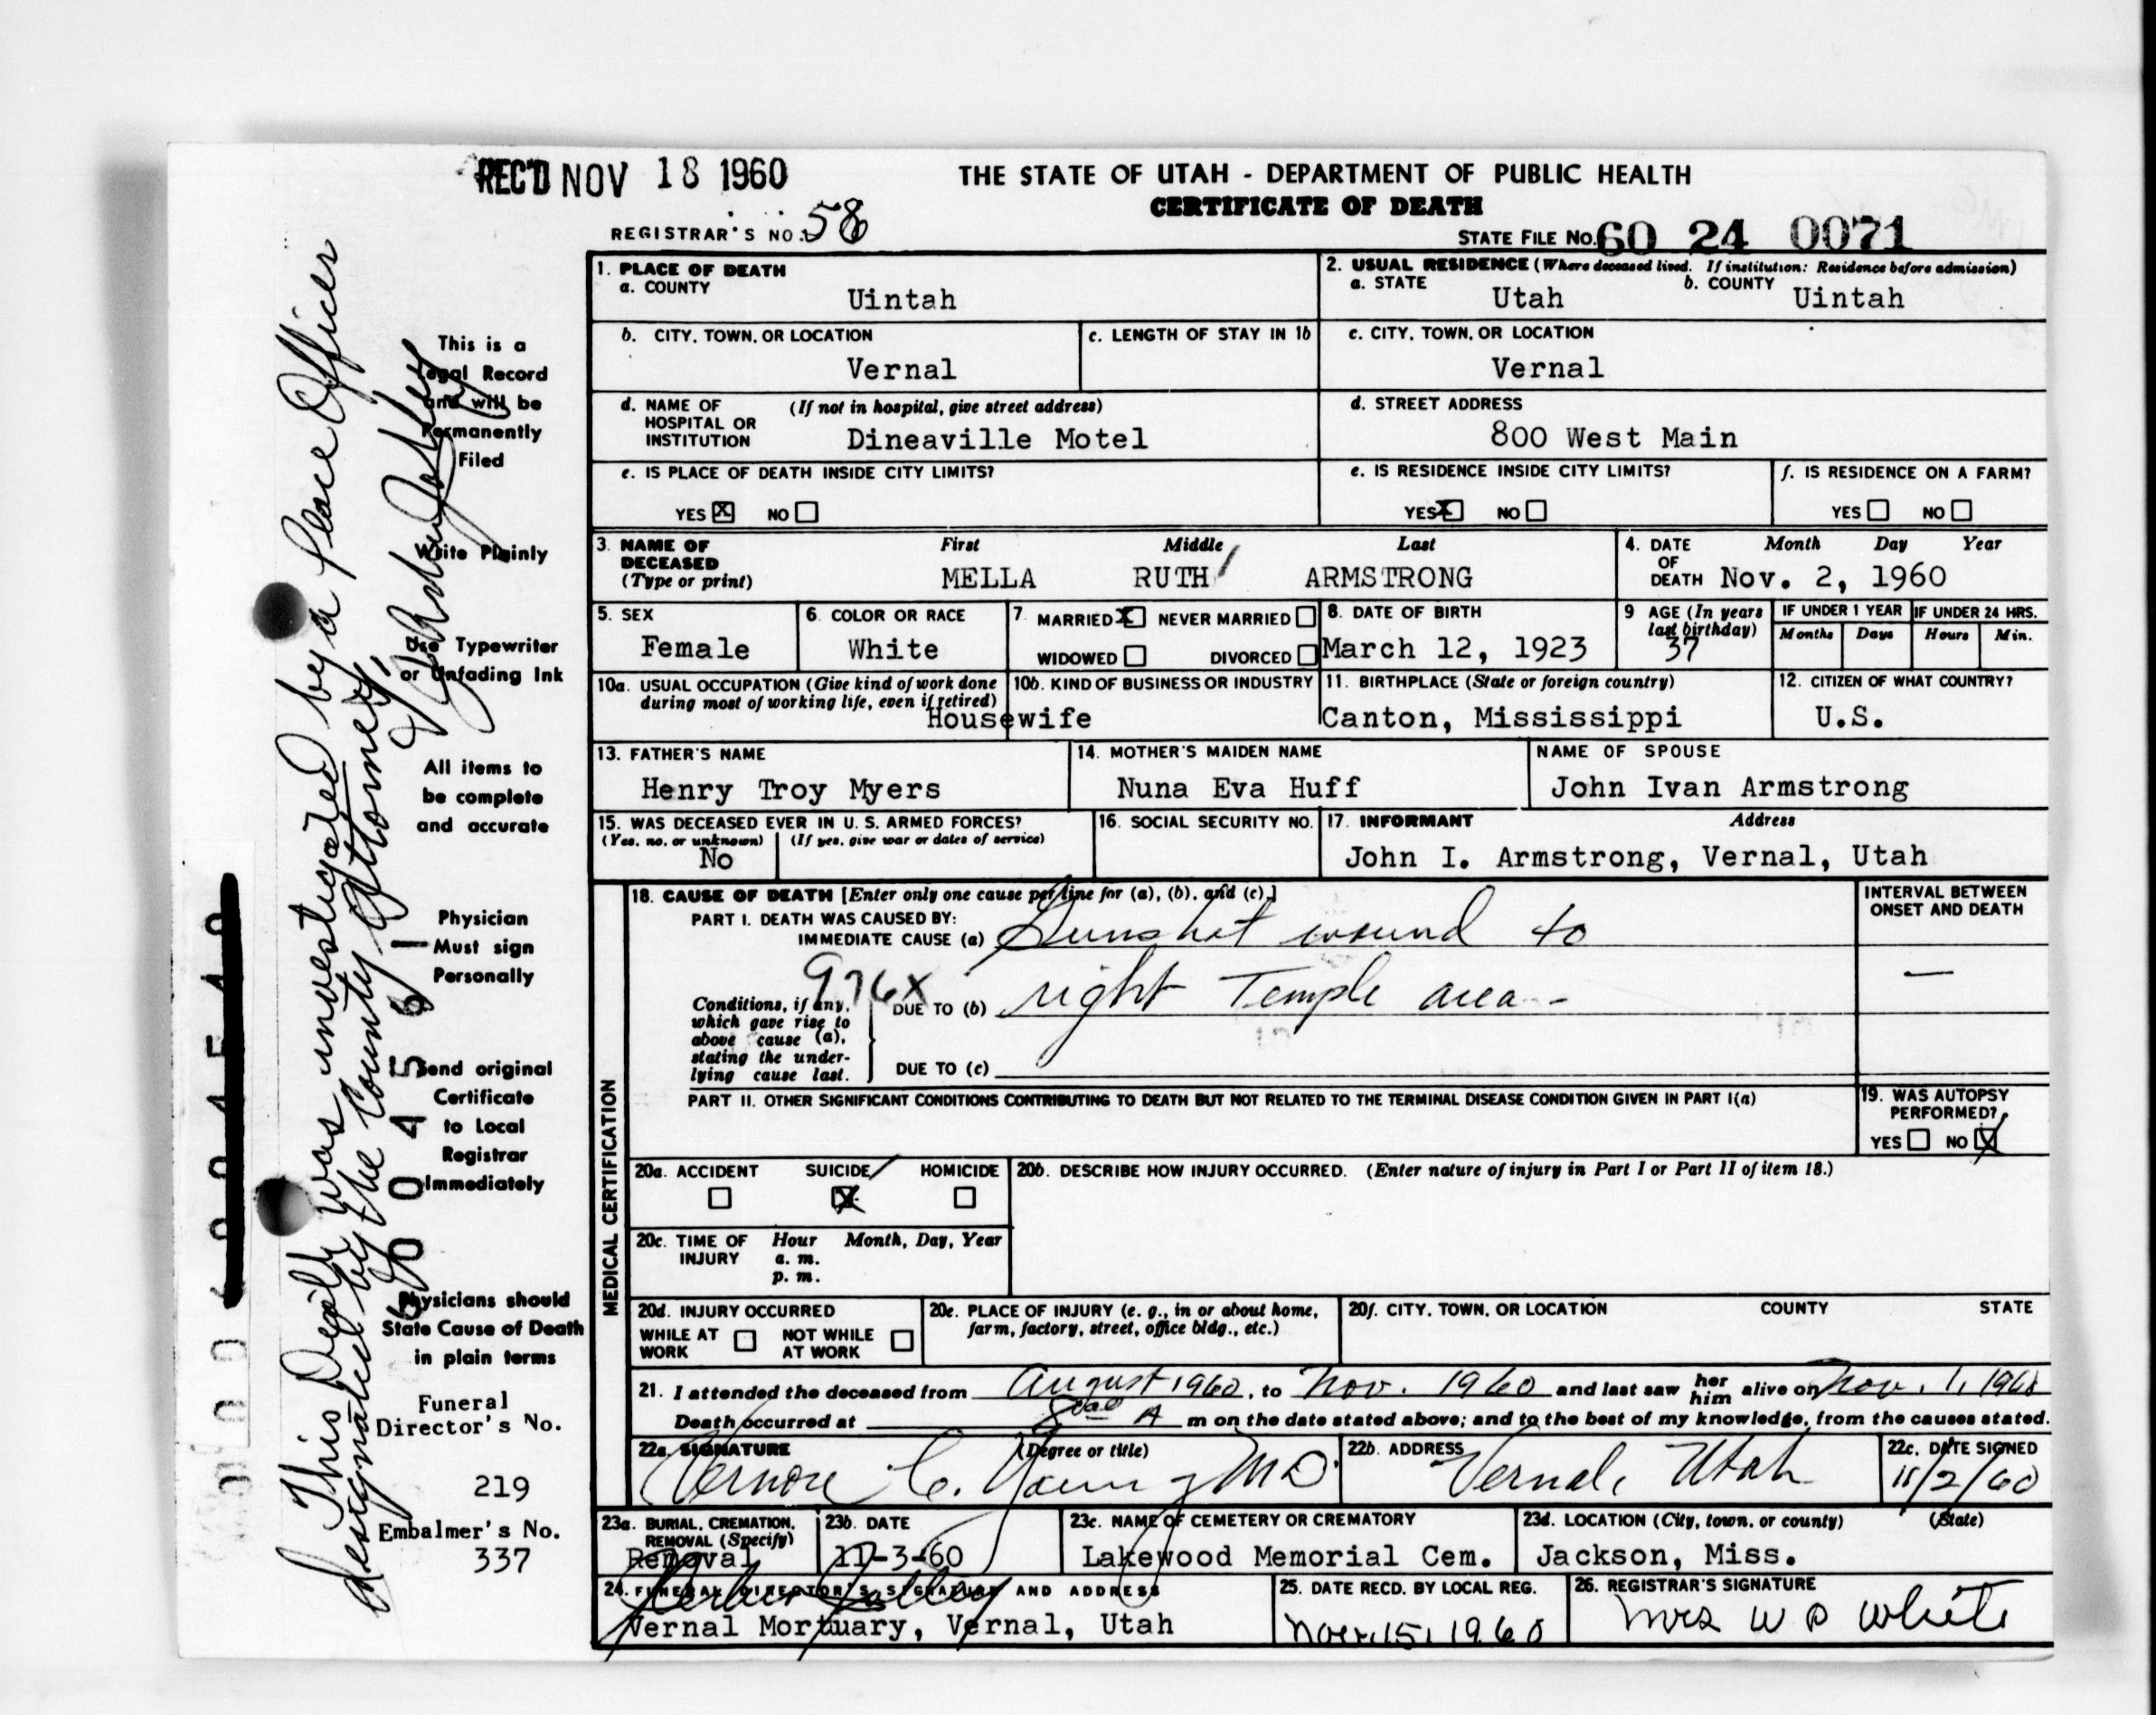 REC'D NOV 18 1960
THE STATE OF UTAH - DEPARTMENT OF PUBLIC HEALTH
CERTIFICATE OF DEATH
REGISTRAR'S NO. 58
STATE FILE No. 60 24 0071
1. PLACE OF DEATH
a. COUNTY
Uintah
2. USUAL RESIDENCE (Where deceased lived. If institution: Residence before admission)
a. STATE Utah b. COUNTY Uintah
b. CITY, TOWN, OR LOCATION
Vernal
c. LENGTH OF STAY IN 1b
c. CITY, TOWN, OR LOCATION
Vernal
d. NAME OF HOSPITAL OR INSTITUTION (If not in hospital, give street address)
Dineaville Motel
d. STREET ADDRESS
800 West Main
e. IS PLACE OF DEATH INSIDE CITY LIMITS?
YES X NO
e. IS RESIDENCE INSIDE CITY LIMITS?
YES X NO
f. IS RESIDENCE ON A FARM?
YES NO
3. NAME OF DECEASED (Type or print)
First Middle Last
MELLA RUTH ARMSTRONG
4. DATE OF DEATH Month Day Year
Nov. 2, 1960
5. SEX
Female
6. COLOR OR RACE
White
7. MARRIED X NEVER MARRIED
WIDOWED DIVORCED
8. DATE OF BIRTH
March 12, 1923
9 AGE (In years last birthday)
37
IF UNDER 1 YEAR
Months Days
IF UNDER 24 HRS.
Hours Min.
10a. USUAL OCCUPATION (Give kind of work done during most of working life, even if retired)
10b. KIND OF BUSINESS OR INDUSTRY
Housewife
11. BIRTHPLACE (State or foreign country)
Canton, Mississippi
12. CITIZEN OF WHAT COUNTRY?
U.S.
13. FATHER'S NAME
Henry Troy Myers
14. MOTHER'S MAIDEN NAME
Nuna Eva Huff
NAME OF SPOUSE
John Ivan Armstrong
15. WAS DECEASED EVER IN U. S. ARMED FORCES?
(Yes, no, or unknown) (If yes, give war or dates of service)
No
16. SOCIAL SECURITY NO.
17. INFORMANT Address
John I. Armstrong, Vernal, Utah
MEDICAL CERTIFICATION
18. CAUSE OF DEATH [Enter only one cause per line for (a), (b), and (c).]
PART I. DEATH WAS CAUSED BY:
IMMEDIATE CAUSE (a) Gunshot wound to
976X
Conditions, if any, which gave rise to above cause (a), stating the underlying cause last.
DUE TO (b) right Temple area -
DUE TO (c)
INTERVAL BETWEEN ONSET AND DEATH
—
PART II. OTHER SIGNIFICANT CONDITIONS CONTRIBUTING TO DEATH BUT NOT RELATED TO THE TERMINAL DISEASE CONDITION GIVEN IN PART I(a)
19. WAS AUTOPSY PERFORMED?
YES NO X
20a. ACCIDENT SUICIDE HOMICIDE
X
20b. DESCRIBE HOW INJURY OCCURRED. (Enter nature of injury in Part I or Part II of item 18.)
20c. TIME OF INJURY Hour Month, Day, Year
a. m.
p. m.
20d. INJURY OCCURRED
WHILE AT WORK NOT WHILE AT WORK
20e. PLACE OF INJURY (e. g., in or about home, farm, factory, street, office bldg., etc.)
20f. CITY, TOWN, OR LOCATION COUNTY STATE
21. I attended the deceased from August 1960, to Nov. 1960 and last saw her him alive on Nov. 1, 1960
Death occurred at 8 00 A m on the date stated above; and to the best of my knowledge, from the causes stated.
22a. SIGNATURE (Degree or title)
Vernon C. Young MD.
22b. ADDRESS
Vernal, Utah
22c. DATE SIGNED
11/2/60
23a. BURIAL, CREMATION, REMOVAL (Specify)
Removal
23b. DATE
11-3-60
23c. NAME OF CEMETERY OR CREMATORY
Lakewood Memorial Cem.
23d. LOCATION (City, town, or county) (State)
Jackson, Miss.
24. FUNERAL DIRECTOR'S SIGNATURE AND ADDRESS
Vernal Mortuary, Vernal, Utah
25. DATE RECD. BY LOCAL REG.
Nov. 15, 1960
26. REGISTRAR'S SIGNATURE
Mrs W P White
This is a
Legal Record
and will be
Permanently
Filed
Write Plainly
Use Typewriter
or Unfading Ink
All items to
be complete
and accurate
Physician
Must sign
Personally
Send original
Certificate
to Local
Registrar
Immediately
Physicians should
State Cause of Death
in plain terms
Funeral
Director's No.
219
Embalmer's No.
337
This Death was investigated by a Peace Officer
designated by the County Attorney,